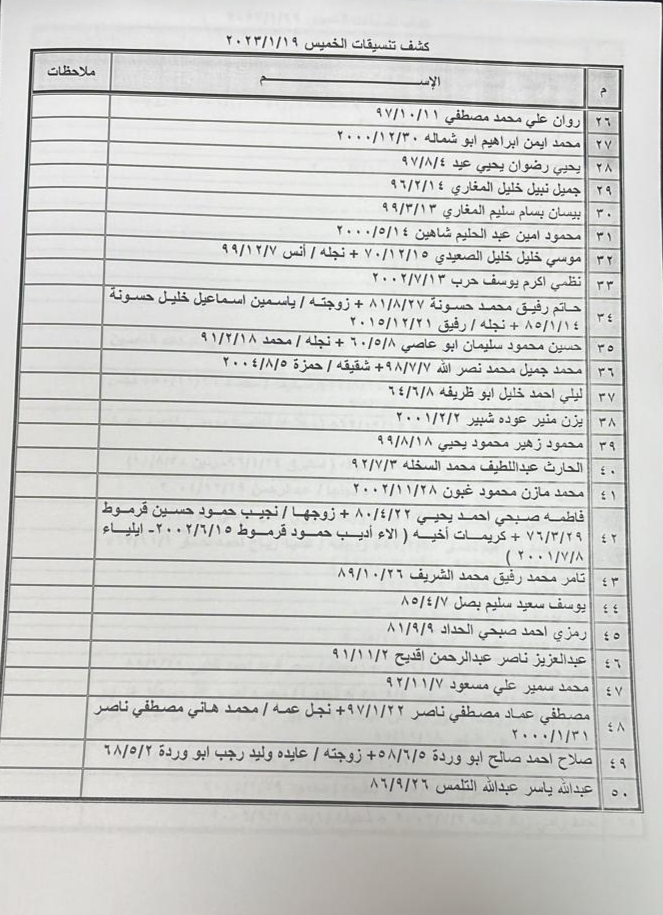 كشف تنسيقات الخميس ٢٠٢٣/١/١٩
م الإســـم ملاحظات
٢٦ روان علي محمد مصطفي ٩٧/١٠/١١
٢٧ محمد ايمن ابراهيم ابو شماله ٢٠٠٠/١٢/٣٠
٢٨ يحيي رضوان يحيي عيد ٩٧/٨/٤
٢٩ جميل نبيل خليل المغاري ٩٦/٢/١٤
٣٠ بيسان بسام سليم المغاري ٩٩/٣/١٣
٣١ محمود امين عبد الحليم شاهين ٢٠٠٠/٥/١٤
٣٢ موسي خليل خليل الصعيدي ٧٠/١٢/١٥ + نجله / أنس ٩٩/١٢/٧
٣٣ نظمي اكرم يوسف حرب ٢٠٠٢/٧/١٣
٣٤ حاتم رفيق محمد حسونة ٨١/٨/٢٧ + زوجته / ياسمين اسماعيل خليل حسونة
٨٥/١/١٤ + نجله / رفيق ٢٠١٥/١٢/٢١
٣٥ حسين محمود سليمان ابو عاصي ٦٠/٥/٨ + نجله / محمد ٩١/٢/١٨
٣٦ محمد جميل محمد نصر الله ٩٨/٧/٧+ شقيقه / حمزة ٢٠٠٤/٨/٥
٣٧ ليلي احمد خليل ابو ظريفه ٦٤/٦/٨
٣٨ يزن منير عوده شبير ٢٠٠١/٢/٢
٣٩ محمود زهير محمود يحيي ٩٩/٨/١٨
٤٠ الحارث عبداللطيف محمد السخله ٩٢/٧/٣
٤١ محمد مازن محمود غبون ٢٠٠٢/١١/٢٨
٤٢ فاطمه صبحي احمد يحيي ٨٠/٤/٢٢ + زوجها / نجيب حمود حسين قرموط
٧٦/٣/٢٩ + كريمات أخيه ( الاء أديب حمود قرموط ٢٠٠٢/٦/١٥- ايلياء
٢٠٠١/٧/٨ )
٤٣ تامر محمد رفيق محمد الشريف ٨٩/١٠/٢٦
٤٤ يوسف سعيد سليم بصل ٨٥/٤/٧
٤٥ رمزي احمد صبحي الحداد ٨١/٩/٩
٤٦ عبدالعزيز ناصر عبدالرحمن اقديح ٩١/١١/٢
٤٧ محمد سمير علي مسعود ٩٢/١١/٧
٤٨ مصطفي عماد مصطفي ناصر ٩٧/١/٢٢+ نجل عمه / محمد هاني مصطفي ناصر
٢٠٠٠/١/٣١
٤٩ صلاح احمد صالح ابو وردة ٥٨/٦/٥+ زوجته / عايده وليد رجب ابو وردة ٦٨/٥/٢
٥٠ عبدالله ياسر عبدالله التلمس ٨٦/٩/٢٦